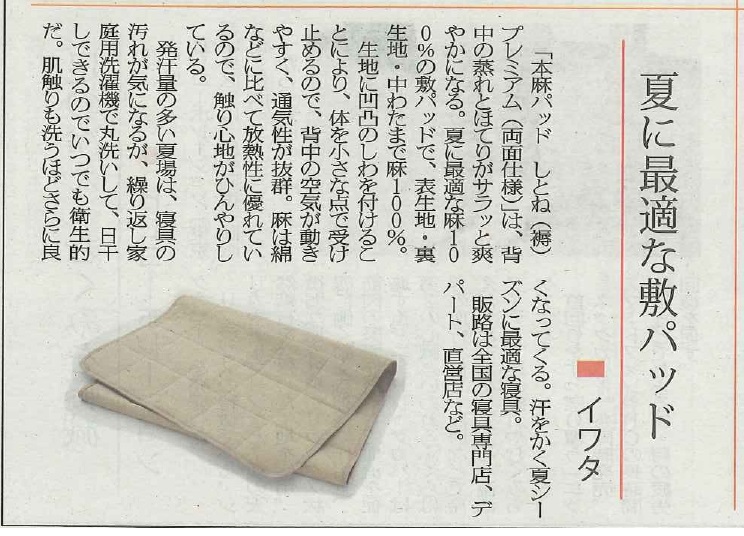 夏に最適な敷パッド
■イワタ
「本麻パッド しとね（褥）
プレミアム（両面仕様）」は、背
中の蒸れとほてりがサラッと爽
やかになる。夏に最適な麻10
0％の敷パッドで、表生地・裏
生地・中わたまで麻100％。
生地に凹凸のしわを付けるこ
とにより、体を小さな点で受け
止めるので、背中の空気が動き
やすく、通気性が抜群。麻は綿
などに比べて放熱性に優れてい
るので、触り心地がひんやりし
ている。
発汗量の多い夏場は、寝具の
汚れが気になるが、繰り返し家
庭用洗濯機で丸洗いして、日干
しできるのでいつでも衛生的
だ。肌触りも洗うほどさらに良
くなってくる。汗をかく夏シー
ズンに最適な寝具。
販路は全国の寝具専門店、デ
パート、直営店など。